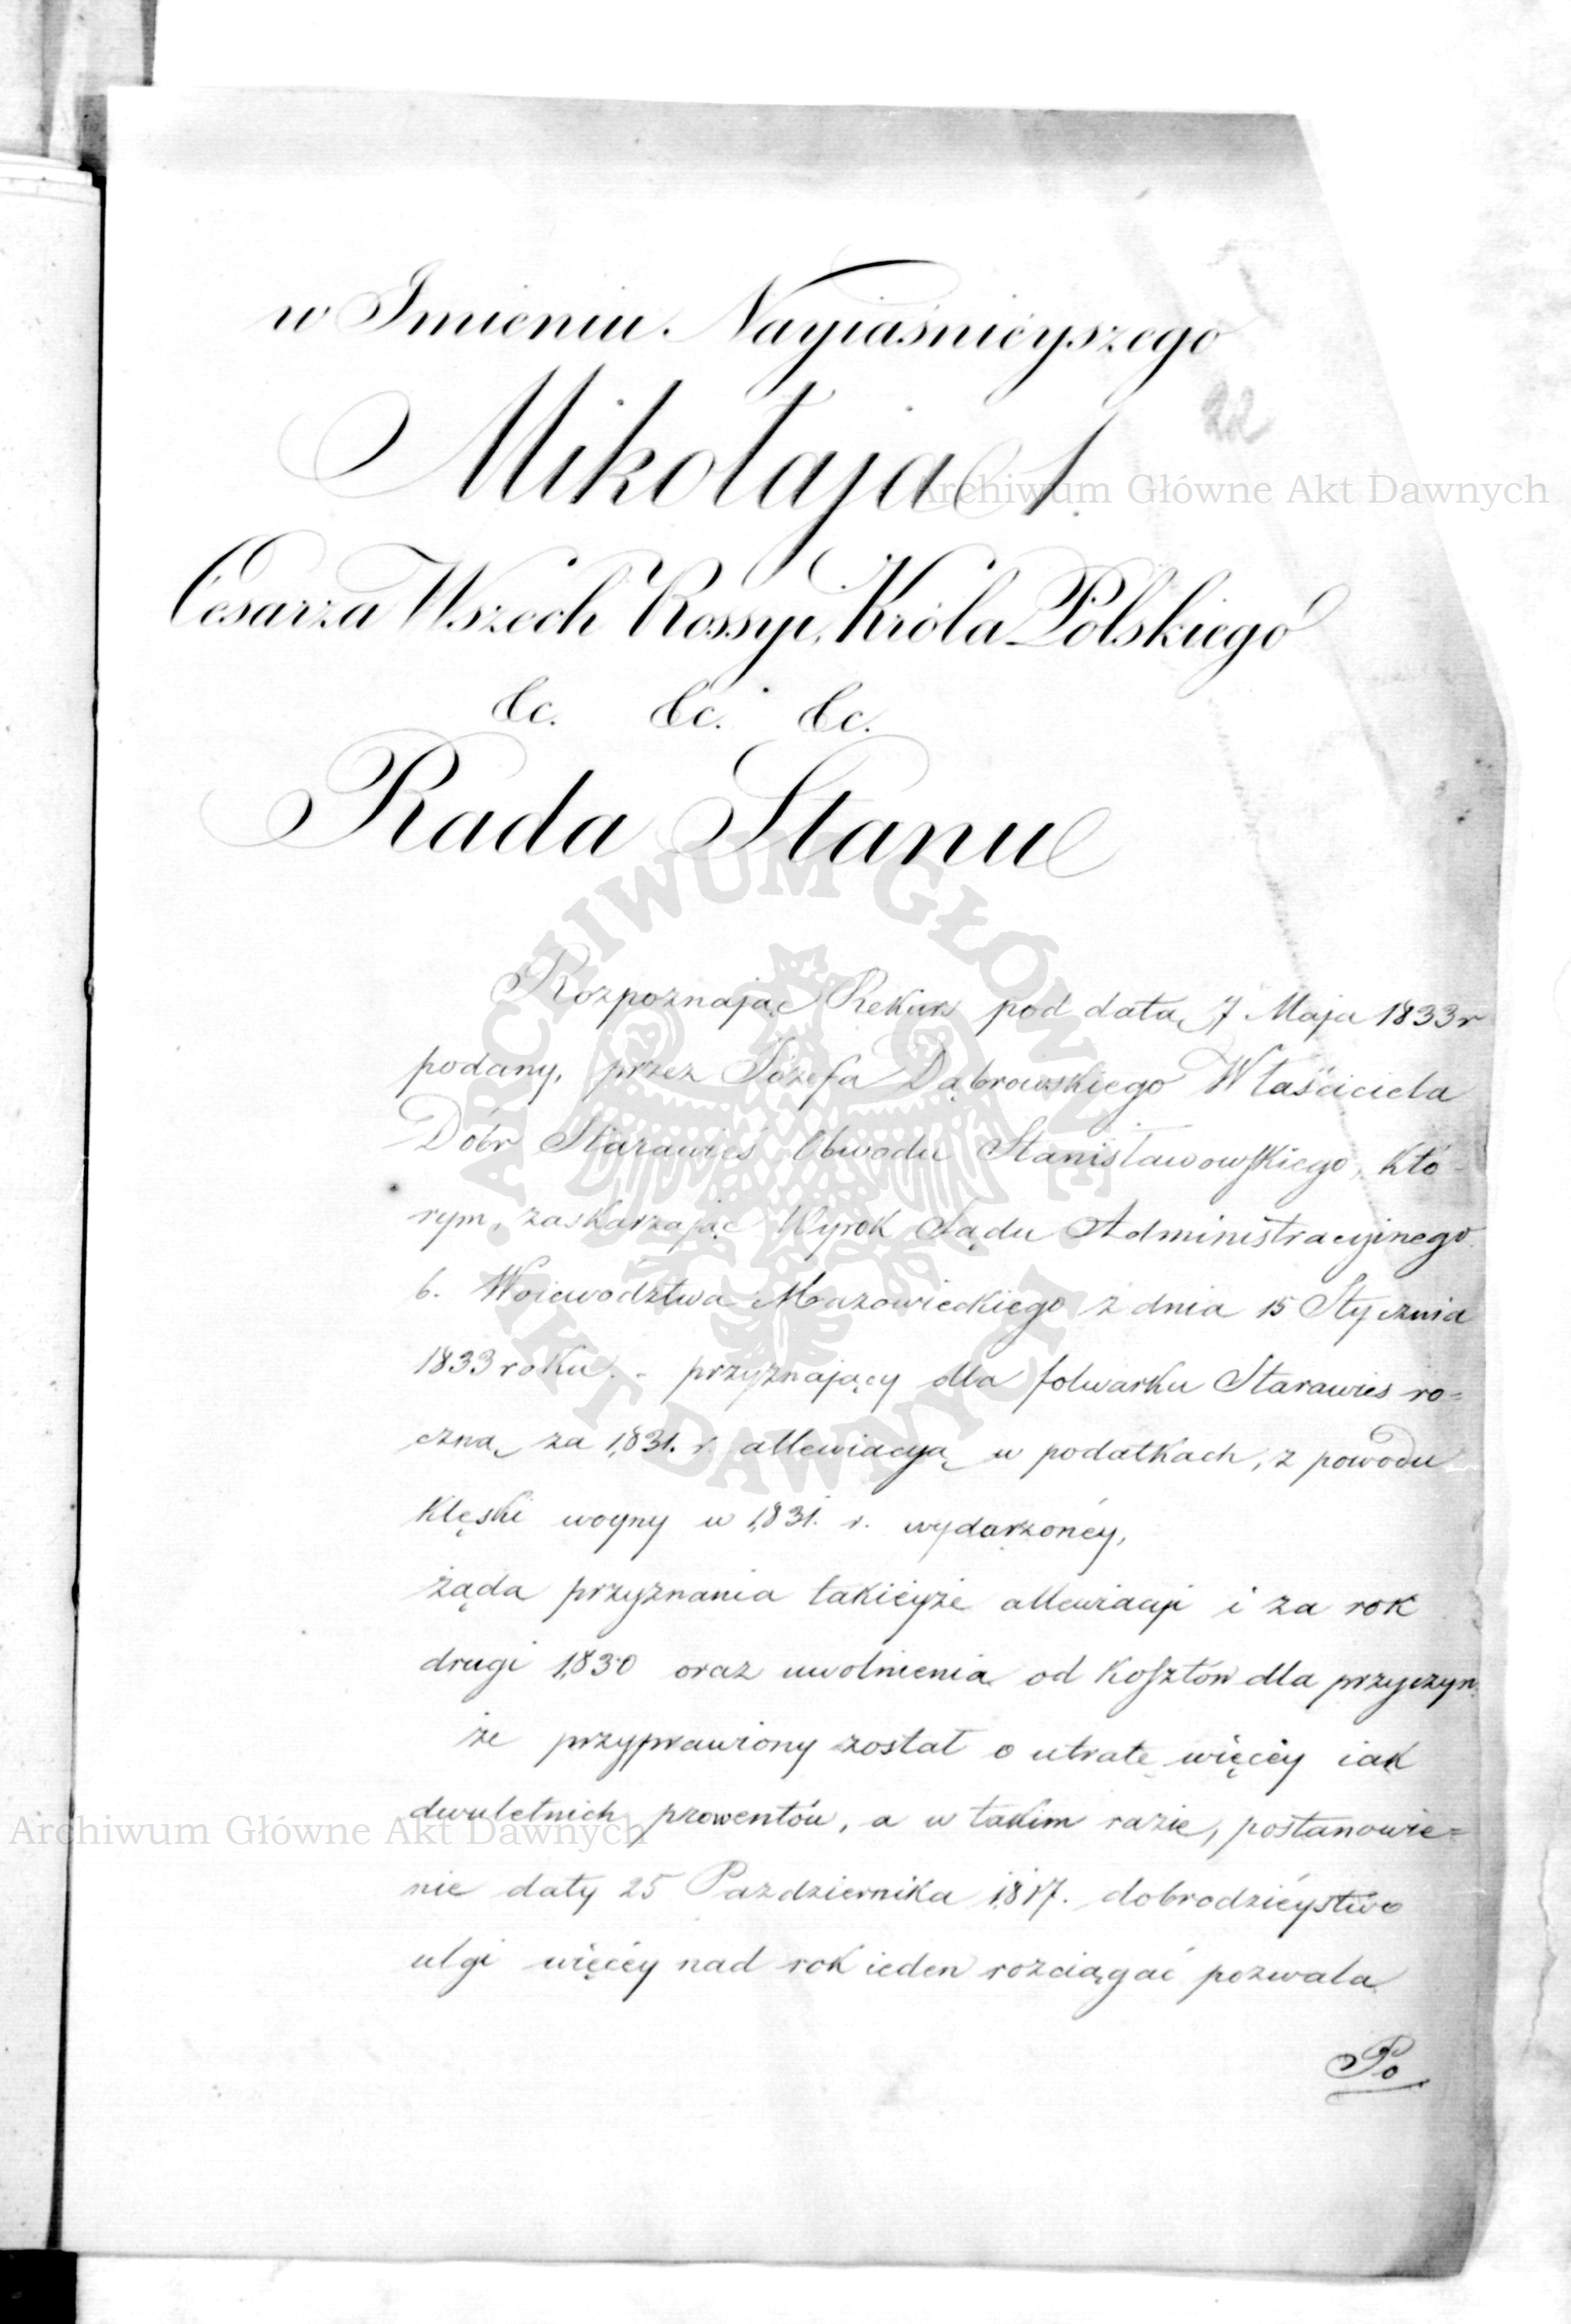 w Imieniu Nayiaśnieyszego
Mikołaja I.
22
Archiwum Główne Akt Dawnych
Cesarza Wszech Rossyi, Króla Polskiego
&c. &c. &c.
Rada Stanu
ARCHIWUM GŁÓWNE AKT DAWNYCH
Rozpoznając Rekurs pod datą 7 Maja 1833 r
podany, przez Józefa Dąbrowskiego Właściciela
Dóbr Starawieś Obwodu Stanisławowskiego, któ-
rym, zaskarżając Wyrok Sądu Administracyjnego
b. Woiewództwa Mazowieckiego z dnia 15 Stycznia
1833 roku. - przyznający dla folwarku Starawieś ro=
czną za 1831. r. allewiacyą w podatkach, z powodu
klęski woyny w 1831. r. wydarzonéy,
żąda przyznania takieyże allewiacyi i za rok
drugi 1830 oraz uwolnienia od kosztów dla przyczyn
że przyprawiony został o utratę więcéy iak
dwuletnich prowentów, a w takim razie, postanowie=
Archiwum Główne Akt Dawnych
nie daty 25 Pazdziernika 1817. dobrodzieystwo
ulgi więcéy nad rok ieden rozciągać pozwala
Po